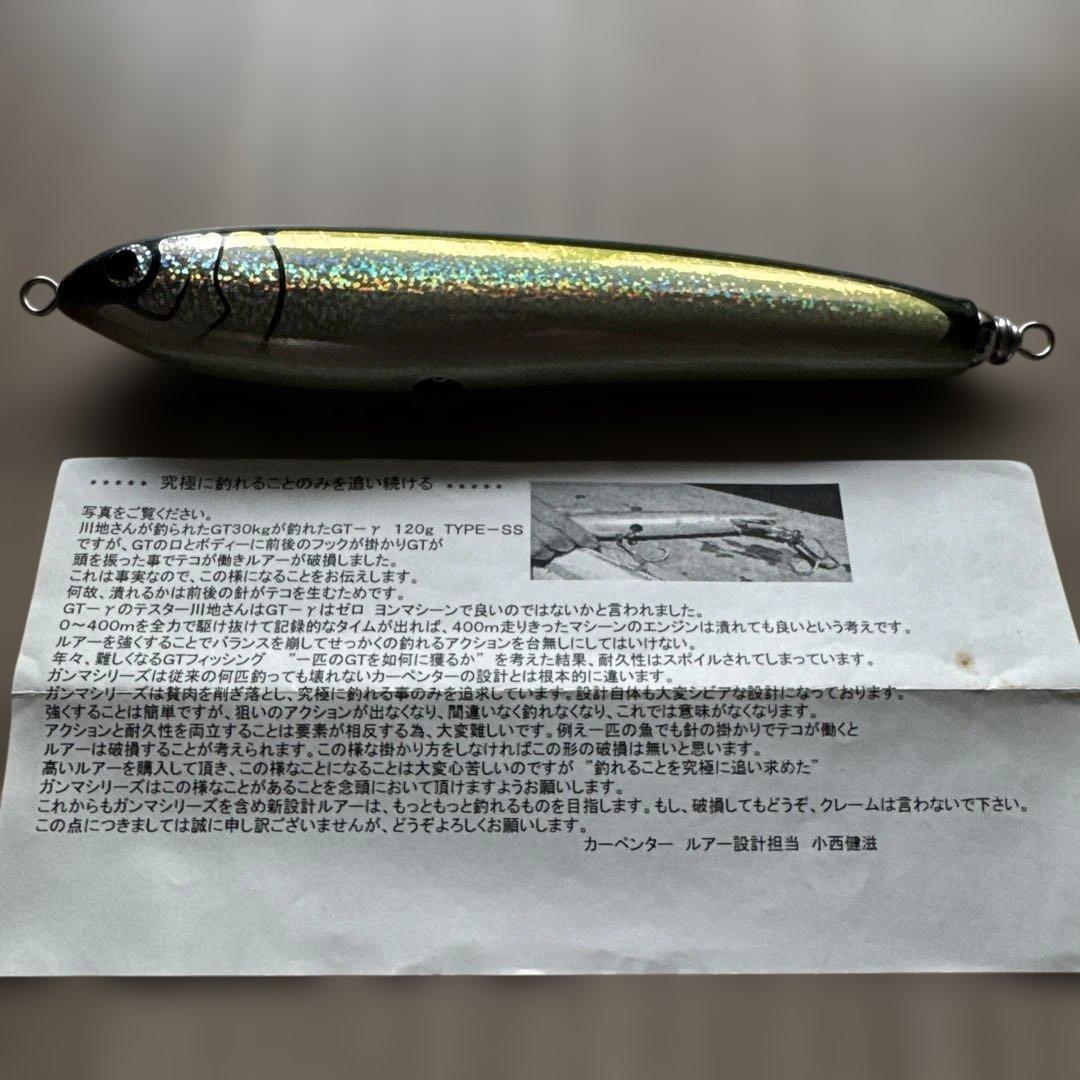 ***** 究極に釣れることのみを追い続ける *****
写真をご覧ください。
川地さんが釣られたGT30kgが釣れたGT－γ 120g TYPE－SS
ですが、GTの口とボディーに前後のフックが掛かりGTが
頭を振った事でテコが働きルアーが破損しました。
これは事実なので、この様になることをお伝えします。
何故、潰れるかは前後の針がテコを生むためです。
GT－γのテスター川地さんはGT－γはゼロ ヨンマシーンで良いのではないかと言われました。
0～400mを全力で駆け抜けて記録的なタイムが出れば、400m走りきったマシーンのエンジンは潰れても良いという考えです。
ルアーを強くすることでバランスを崩してせっかくの釣れるアクションを台無しにしてはいけない。
年々、難しくなるGTフィッシング "一匹のGTを如何に獲るか" を考えた結果、耐久性はスポイルされてしまっています。
ガンマシリーズは従来の何匹釣っても壊れないカーペンターの設計とは根本的に違います。
ガンマシリーズは贅肉を削ぎ落とし、究極に釣れる事のみを追求しています。設計自体も大変シビアな設計になっております。
強くすることは簡単ですが、狙いのアクションが出なくなり、間違いなく釣れなくなり、これでは意味がなくなります。
アクションと耐久性を両立することは要素が相反する為、大変難しいです。例え一匹の魚でも針の掛かりでテコが働くと
ルアーは破損することが考えられます。この様な掛かり方をしなければこの形の破損は無いと思います。
高いルアーを購入して頂き、この様なことになることは大変心苦しいのですが "釣れることを究極に追い求めた"
ガンマシリーズはこの様なことがあることを念頭において頂けますようお願いします。
これからもガンマシリーズを含め新設計ルアーは、もっともっと釣れるものを目指します。もし、破損してもどうぞ、クレームは言わないで下さい。
この点につきましては誠に申し訳ございませんが、どうぞよろしくお願いします。
カーペンター ルアー設計担当 小西健滋